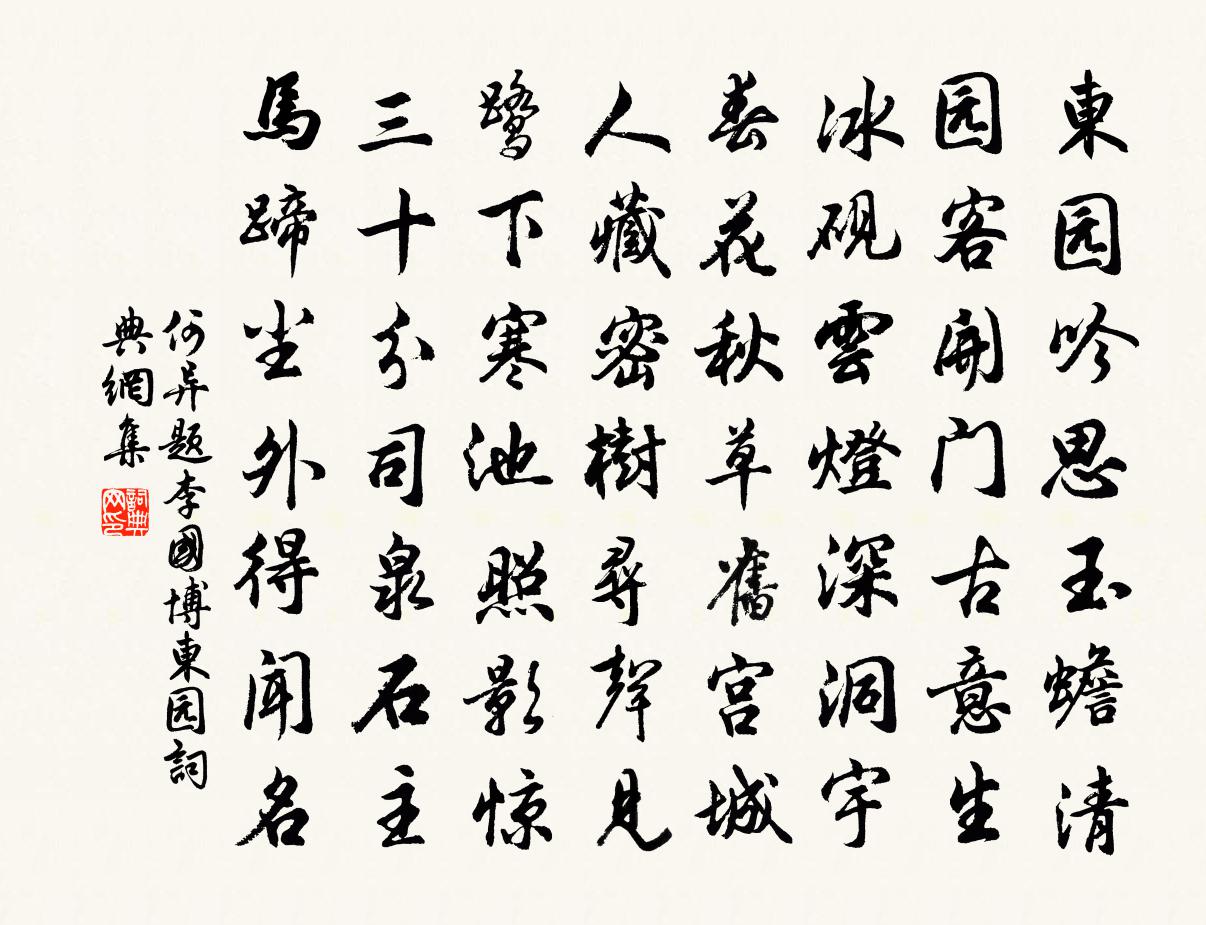 東园吟思玉蟾清
园客開门古意生
冰硯雲燈深洞宇
春花秋草舊宫城
人藏密樹尋聲見
鹭下寒池照影惊
三十分司泉石主
馬蹄尘外得闻名
何异题李國博東园詞
典網集
詞典
网印